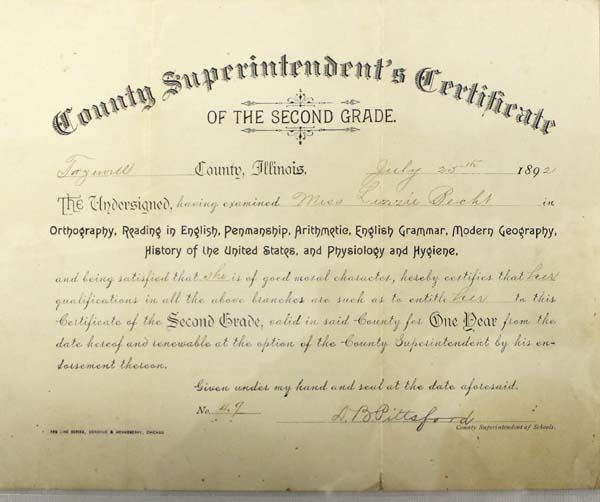 County Superintendent's Certificate
OF THE SECOND GRADE.
Tazewell County, Illinois, July 25th 1892
The Undersigned, having examined Miss Lizzie Becht in
Orthography, Reading in English, Penmanship, Arithmetic, English Grammar, Modern Geography,
History of the United States, and Physiology and Hygiene,
and being satisfied that she is of good moral character, hereby certifies that her
qualifications in all the above branches are such as to entitle her to this
Certificate of the Second Grade, valid in said County for One Year from the
date hereof and renewable at the option of the County Superintendent by his en-
dorsement thereon.
Given under my hand and seal at the date aforesaid.
No. 49 D. B. Pittsford
County Superintendent of Schools.
RED LINE SERIES, CHICAGO